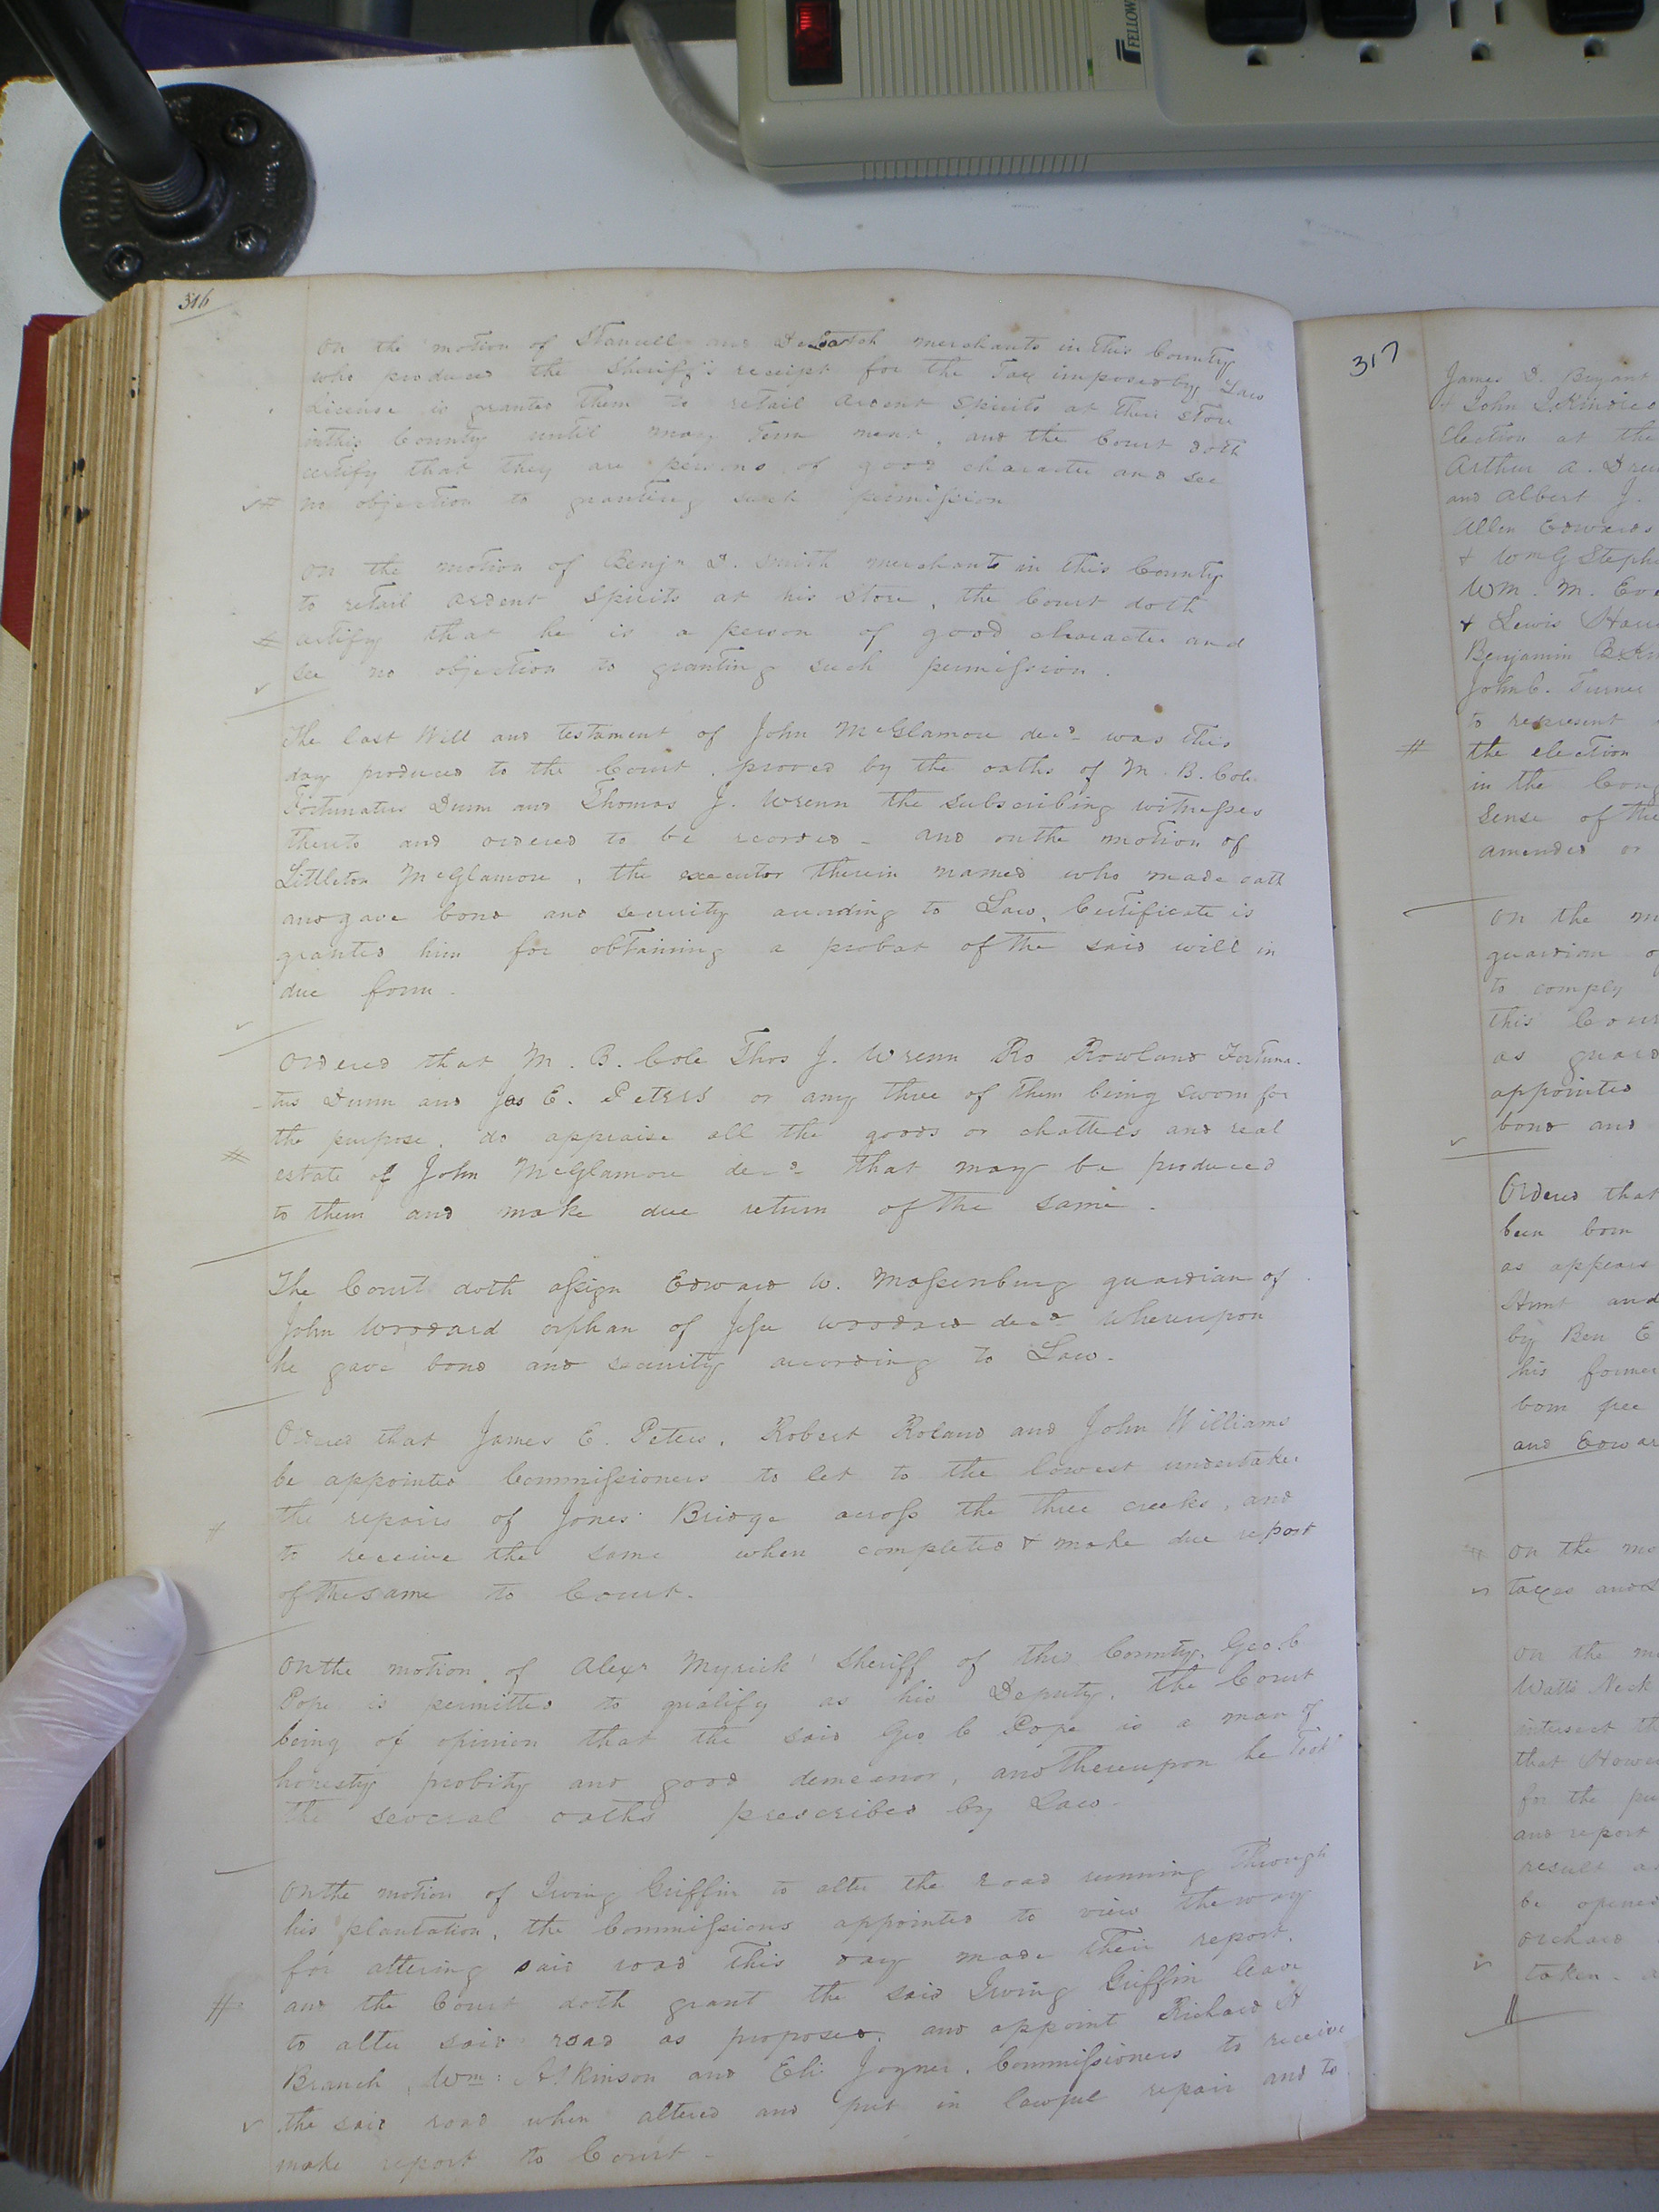 FELLOW
316
On the motion of Stanuell and Deloatch merchants in this County
who produced the Sheriff's receipt for the Tax imposed by Law
License is granted them to retail ardent spirits at their store
in this County until may Term next, and the Court doth
certify that they are persons of good character and see
no objection to granting such permission
On the motion of Benjn D. Smith merchants in this County
to retail ardent spirits at his store, the Court doth
certify that he is a person of good character and
see no objection to granting such permission.
The last Will and testament of John McGlamore decd was this
day produced to the Court, proved by the oaths of M. B. Cole
Fortunatus Dunn and Thomas J. Wrenn the subscribing witnesses
thereto and ordered to be recorded - and on the motion of
Littleton McGlamore, the executor therein named who made oath
and gave bond and security according to Law, Certificate is
granted him for obtaining a probat of the said will in
due form.
Ordered that M. B. Cole Thos J. Wrenn Ro Rowland Fortuna-
-tus Dunn and Jas E. Peters or any three of them being sworn for
the purpose, do appraise all the goods or chattels and real
estate of John McGlamore decd that may be produced
to them and make due return of the same.
The Court doth assign Edward W. Massenburg guardian of
John Woodard orphan of Jesse Woodard decd Whereupon
he gave bond and security according to Law.
Ordered that James E. Peters, Robert Roland and John Williams
be appointed Commissioners to let to the lowest undertaker
the repairs of Jones' Bridge across the three creeks, and
to receive the same when completed & make due report
of the same to Court.
On the motion of Alexr Myrick Sheriff of this County, Geo C
Pope is permitted to qualify as his Deputy, the Court
being of opinion that the said Geo C Pope is a man of
honesty probity and good demeanor, and thereupon he took
the several oaths prescribed by Law.
On the motion of Irving Griffin to alter the road running through
his plantation, the Commissions appointed to view the way
for altering said road this day made their report,
and the Court doth grant the said Irving Griffin leave
to alter said road as proposed, and appoint Richard H
Branch, Wm: Atkinson and Eli Joyner, Commissioners to receive
the said road when altered and put in lawful repair and to
make report to Court.
317
James D. Bryant
& John
Election at the
Arthur A. Drew
and Albert J.
Allen Edwards
& Wm G Steph
Wm. M.
& Lewis
Benjamin
John C. Turner
to represent
the election
in the
Sense of the
amended or
On the m
guardian of
to comply
this Cour
as guard
appointed
bond and
Ordered that
been born
as appears
Hunt and
by Ben E
his former
born free
and Edwar
On the mo
taxes and
On the m
Watts Neck
intersect th
that Howe
for the pu
and report
result a
be opened
orchard
taken.